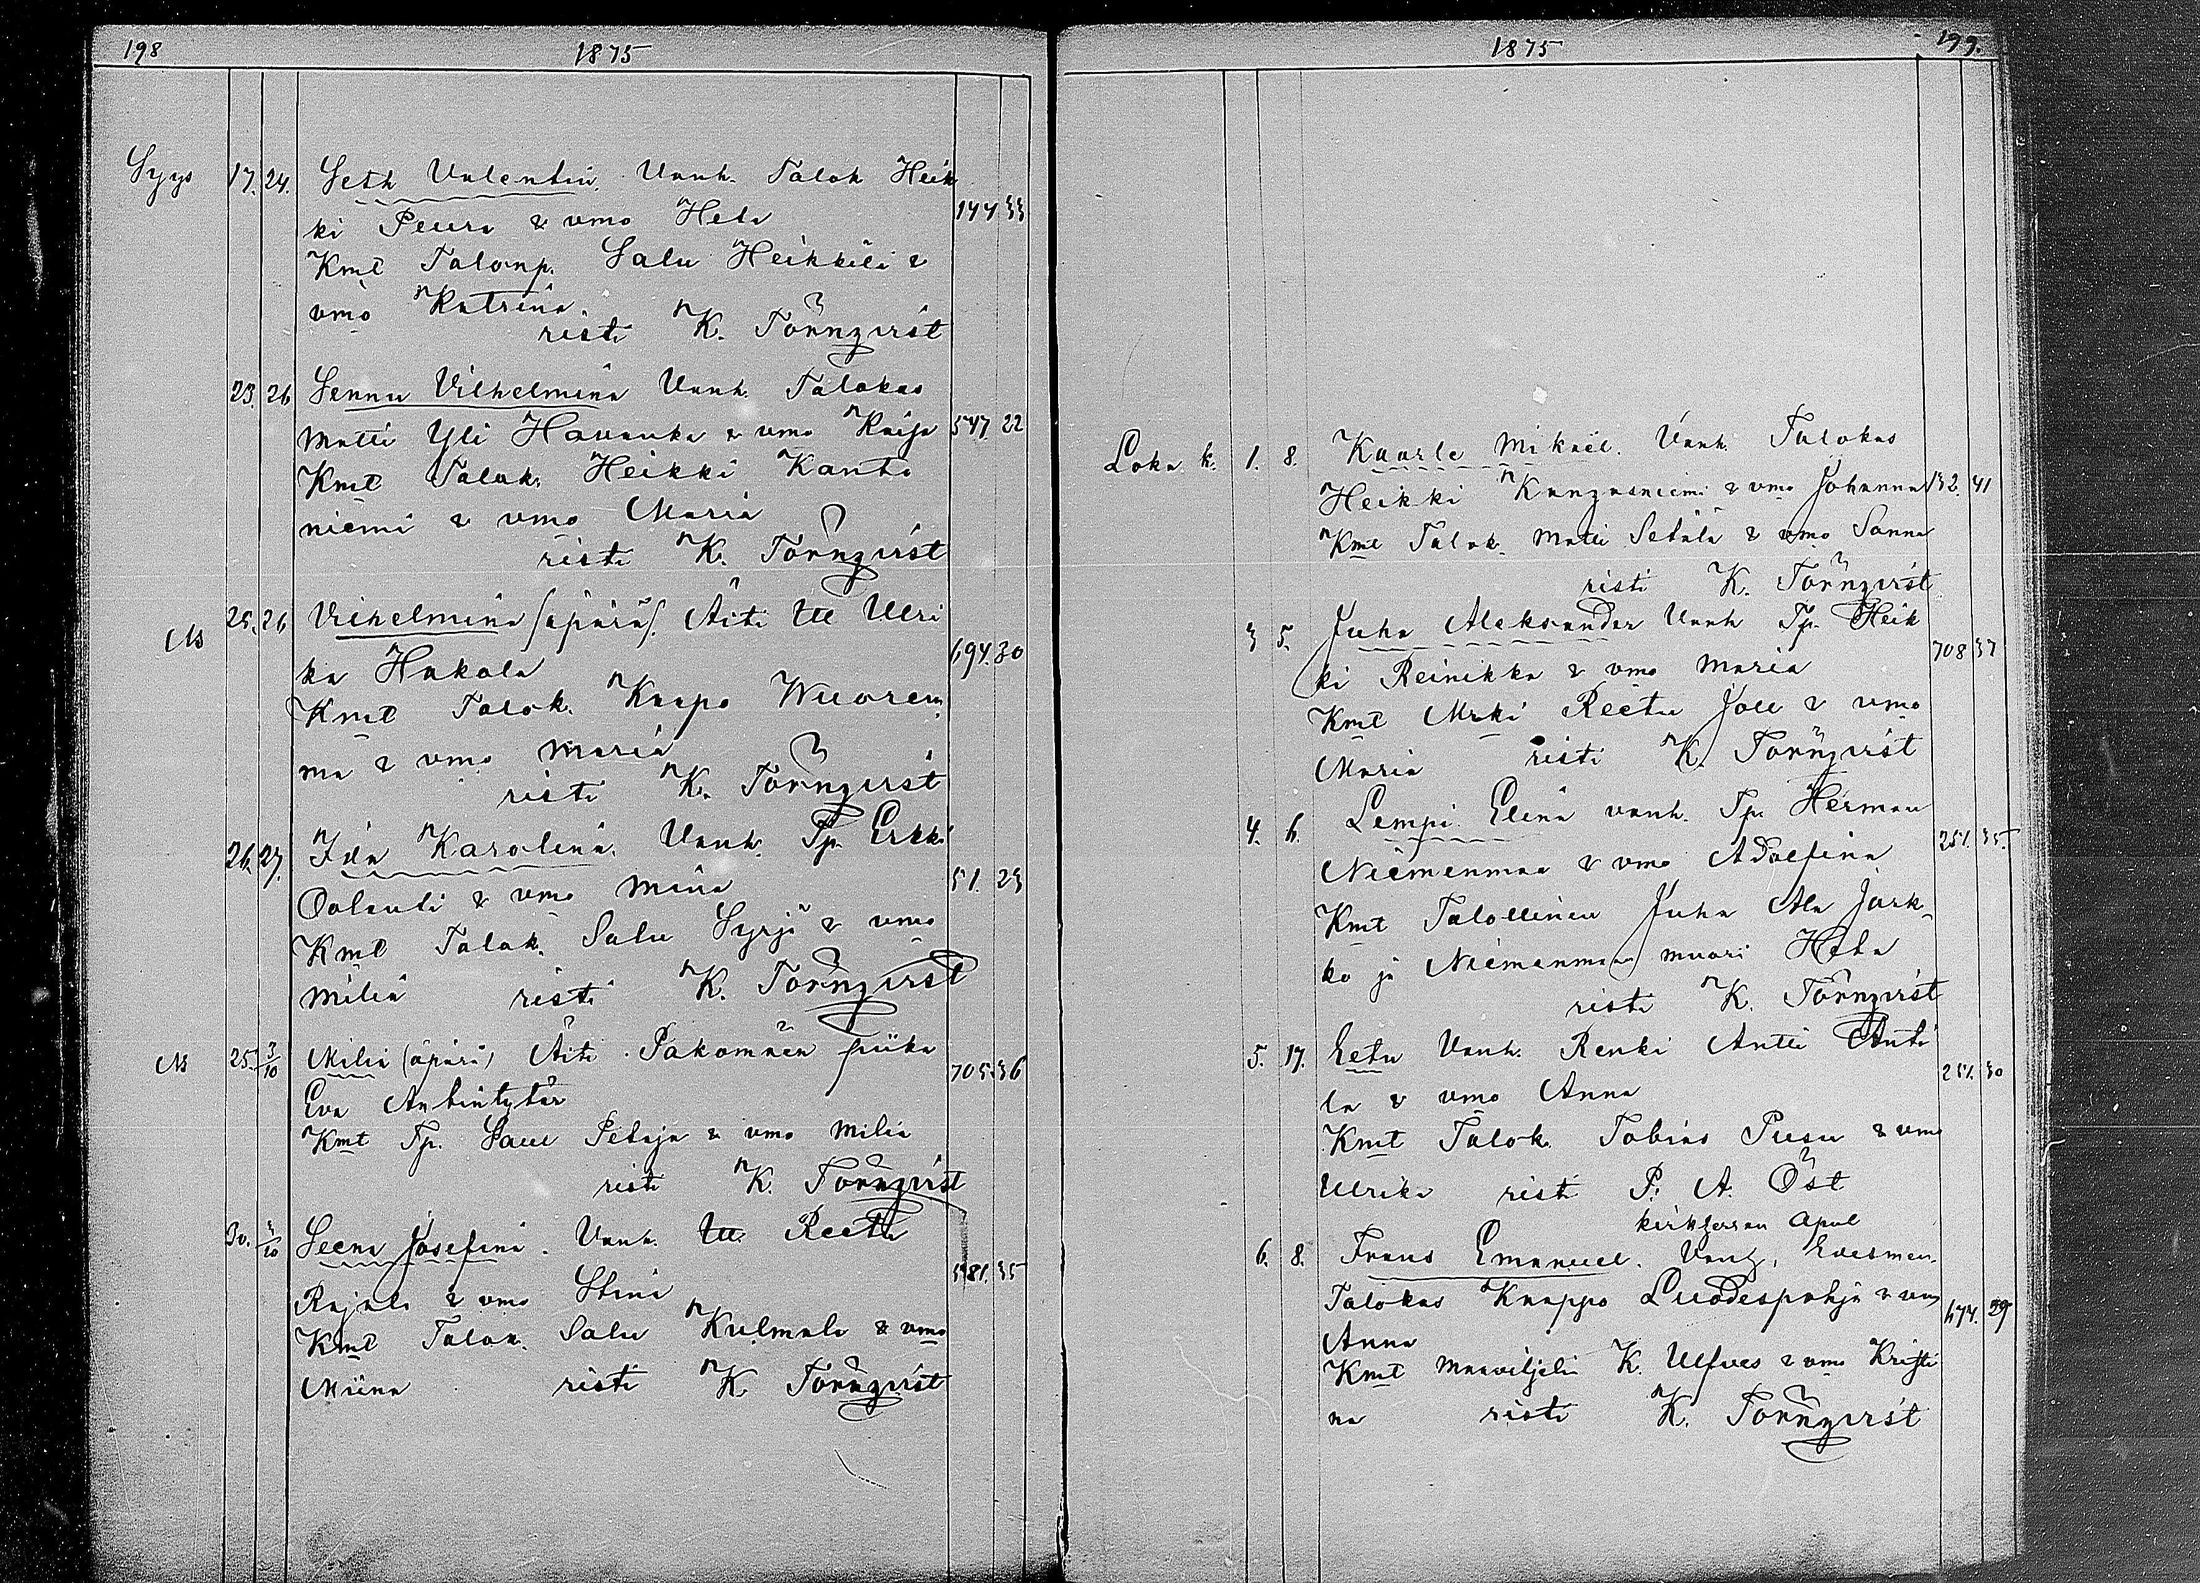 198 1875
Syys 17. 24. Seth Valentin. Vanh. Talok Heik
ki Peura & vmo Heta 144 33
Kmt Talonp. Salu Heikkilä &
vmo Katrina
risti K. Törnqvist
23. 26 Sanna Vilhelmina Vanh. Talokas
Matti Yli Havunka & vmo Kaija 547 22
Kmt Talok. Heikki Kanta
niemi & vmo Maria
risti K. Törnqvist
25. 26 Vilhelmina (äpärä). Äiti Itl Ulri
ka Hakola 694. 30
Kmt Talok. Kaapo Wuoren
maa & vmo Maria
risti K. Törnqvist
26. 27. Ida Karolina. Vanh. Tp. Erkki
& vmo Mina 51. 23
Kmt Talok. Salu Syrjä & vmo
Milia risti K. Törnqvist
25. 3/10 Milia (äpärä) Äiti. Pakomaan piika
Eva Antintytär 705. 36
Kmt Tp. Saul Petäjä & vmo Milia
risti K. Törnqvist
30. 3/10 Seena Josefina. Vanh. Itl. Reetu
Rajala & vmo Stina 581. 35
Kmt Talok. Salu Kulmala & vmo
Miina risti K. Törnqvist
1875 199.
Loka k. 1. 8. Kaarle Mikael. Vanh. Talokas
Heikki Kangasniemi & vmo Johanna 132. 41
Kmt Talok. Matti Setälä & vmo Sanna
risti K. Törnqvist
3 5. Juha Aleksander Vanh Tp. Heik
ki Reinikka & vmo Maria 708 37
Kmt Mrki Reetu Joll & vmo
Maria risti K. Törnqvist
4. 6. Lempi Elina vanh. Tp. Herman
Niemenmaa & vmo Adolfina 251. 35.
Kmt Talollinen Juha Ala Jark
ko ja Niemenmaan muori Heta
risti K. Törnqvist
5. 17. Eetu Vanh. Renki Antti Anti
la & vmo Anna 251. 30
Kmt Talok. Tobias Pusu & vmo
Ulrika risti P. A. Öst
kirkkherran Apul
6. 8. Frans Emanuel. Vanh. Entsmen.
Talokas Kaappo Luodespohja & vmo
Anna 674. 29
Kmt Maaviljeli K. Ulfves & vmo Kristi
na risti K. Törnqvist